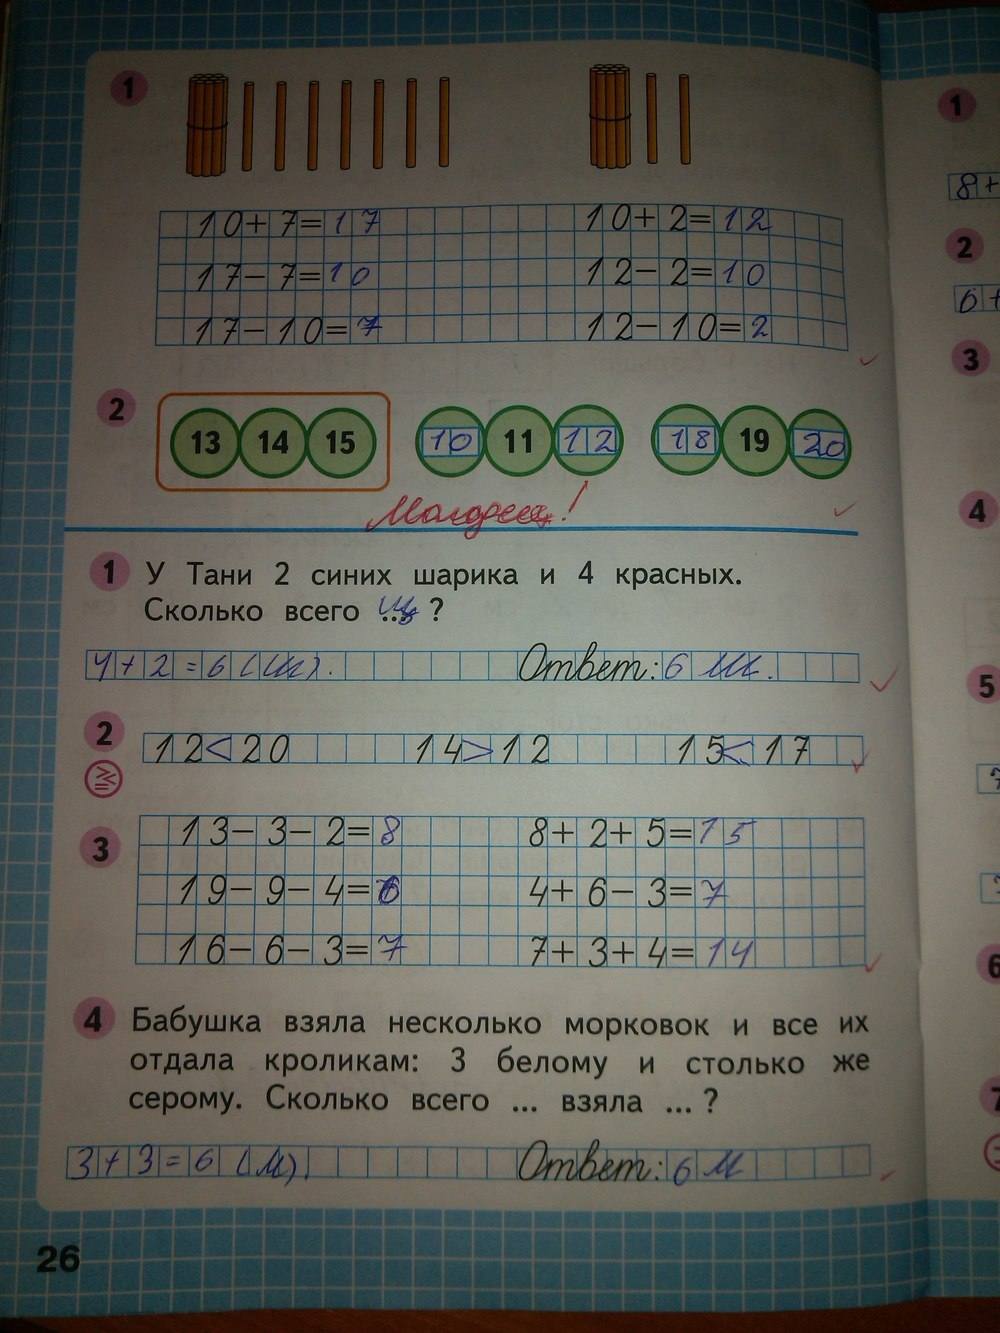 1
10+7=17 10+2=12
17-7=10 12-2=10
17-10=7 12-10=2
2
13 14 15 10 11 12 18 19 20
Молодец!
1 У Тани 2 синих шарика и 4 красных.
Сколько всего ... ?
4+2=6 (ш). Ответ: 6 ш.
2 12<20 14>12 15<17
3
13-3-2=8 8+2+5=15
19-9-4=6 4+6-3=7
16-6-3=7 7+3+4=14
4 Бабушка взяла несколько морковок и все их
отдала кроликам: 3 белому и столько же
серому. Сколько всего ... взяла ... ?
3+3=6 (м). Ответ: 6 м
26
1
8+
2
6+
3
4
5
7
6
7